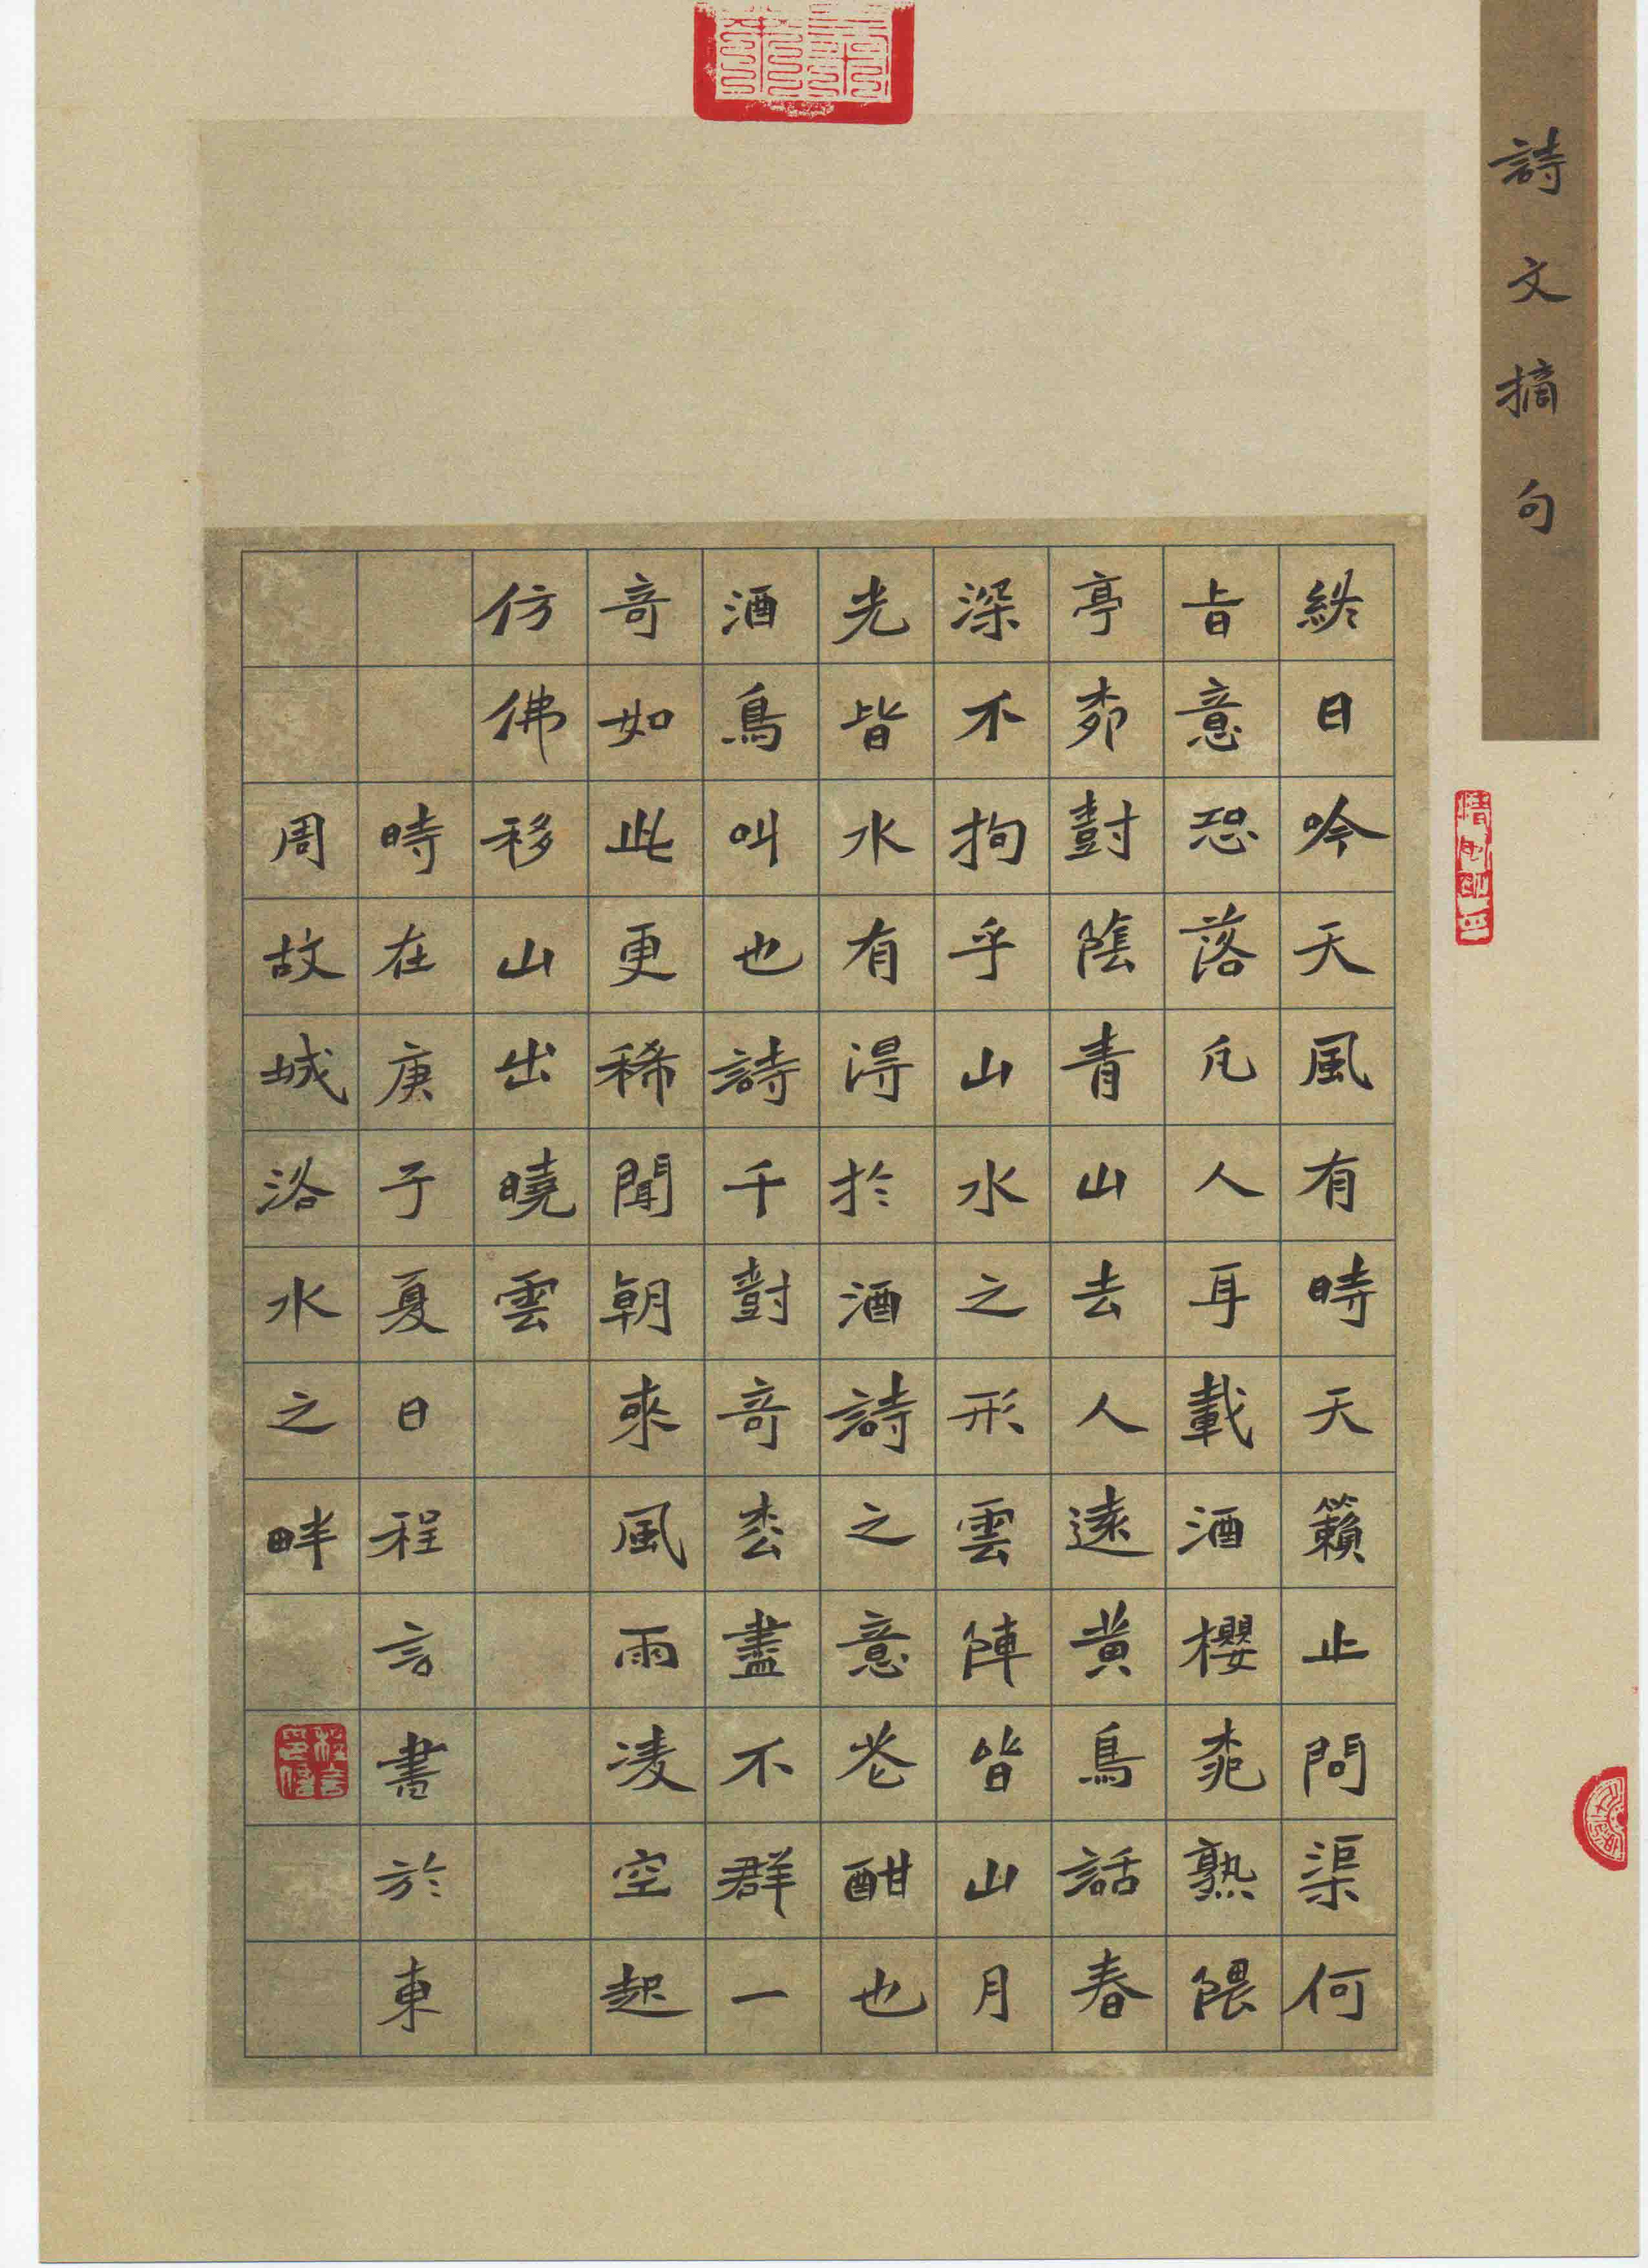 詩文摘句
終日吟天風有時天籟止問渠何
旨意恐落凡人耳載酒櫻桃熟隈
亭郊對陰青山去人遠黃鳥話春
深不拘乎山水之形雲陣皆山月
光皆水有得於酒詩之意花酣也
酒鳥叫也詩千對奇松盡不群一
奇如此更稀聞朝來風雨凌空起
仿佛移山出曉雲
時在庚子夏日程言書於東
周故城洛水之畔